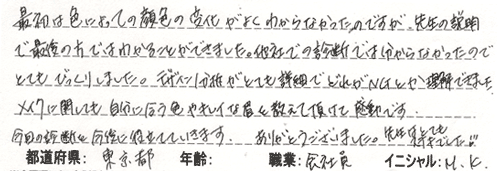 最初は色によっての顔色の変化がよくわからなかったのですが、先生の説明
で最後の方ではわかることができました。他社での診断では分からなかったので
とてもびっくりしました。 分 がとても詳細でどれがNGとか理解できました
メイクに関しても自分に合う色やキレイな眉も教えて頂けて感動です。
今回の診断を今後に役立てていきます。ありがとうございました。先生 とても
でした
都道府県: 東京都 年齢: 職業: 会社員 イニシャル: M.K.